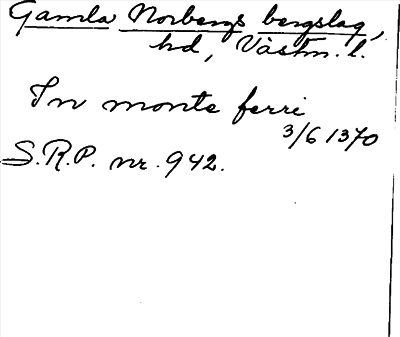 Gamla Norbergs bergslag,
hd, Västm. l.
In monte ferri
3/6 1370
S.R.P. nr. 942.